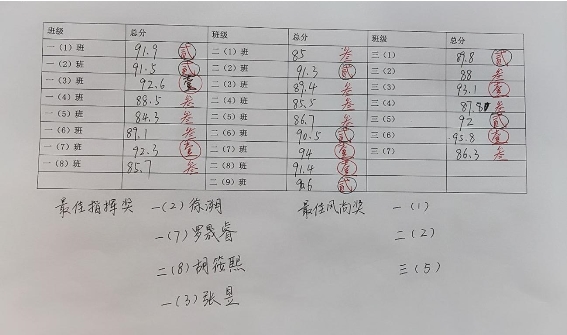 班级 总分 班级 总分 班级 总分
一（1）班 91.9 贰 二（1）班 85 叁 三（1） 89.8 贰
一（2）班 91.5 贰 二（2）班 91.3 贰 三（2） 88 叁
一（3）班 92.6 壹 二（3）班 89.4 叁 三（3） 93.1 壹
一（4）班 88.5 叁 二（4）班 85.5 叁 三（4） 87.8 叁
一（5）班 84.3 叁 二（5）班 86.7 叁 三（5） 92 贰
一（6）班 89.1 叁 二（6）班 90.5 贰 三（6） 95.8 壹
一（7）班 92.3 壹 二（7）班 94 壹 三（7） 86.3 叁
一（8）班 85.7 叁 二（8）班 91.4 壹
二（9）班 贰
最佳指挥奖 一（2）徐溯 最佳风尚奖 一（1）
一（7）罗晟睿 二（2）
二（8）胡筱熙 三（5）
一（3）张昱